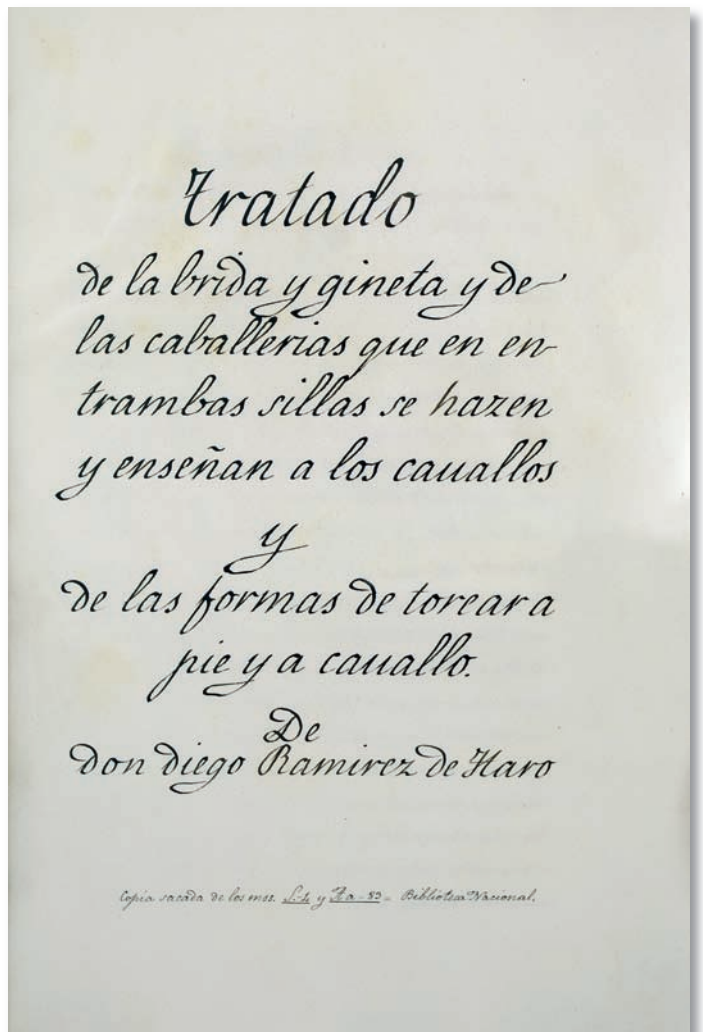 tratado
de la brida y gineta y de
las caballerias que en en-
trambas sillas se hazen
y enseñan a los cauallos
y
de las formas de torear a
pie y a cauallo.
De
don diego Ramirez de Haro
Copia sacada de los mss. y Biblioteca Nacional.